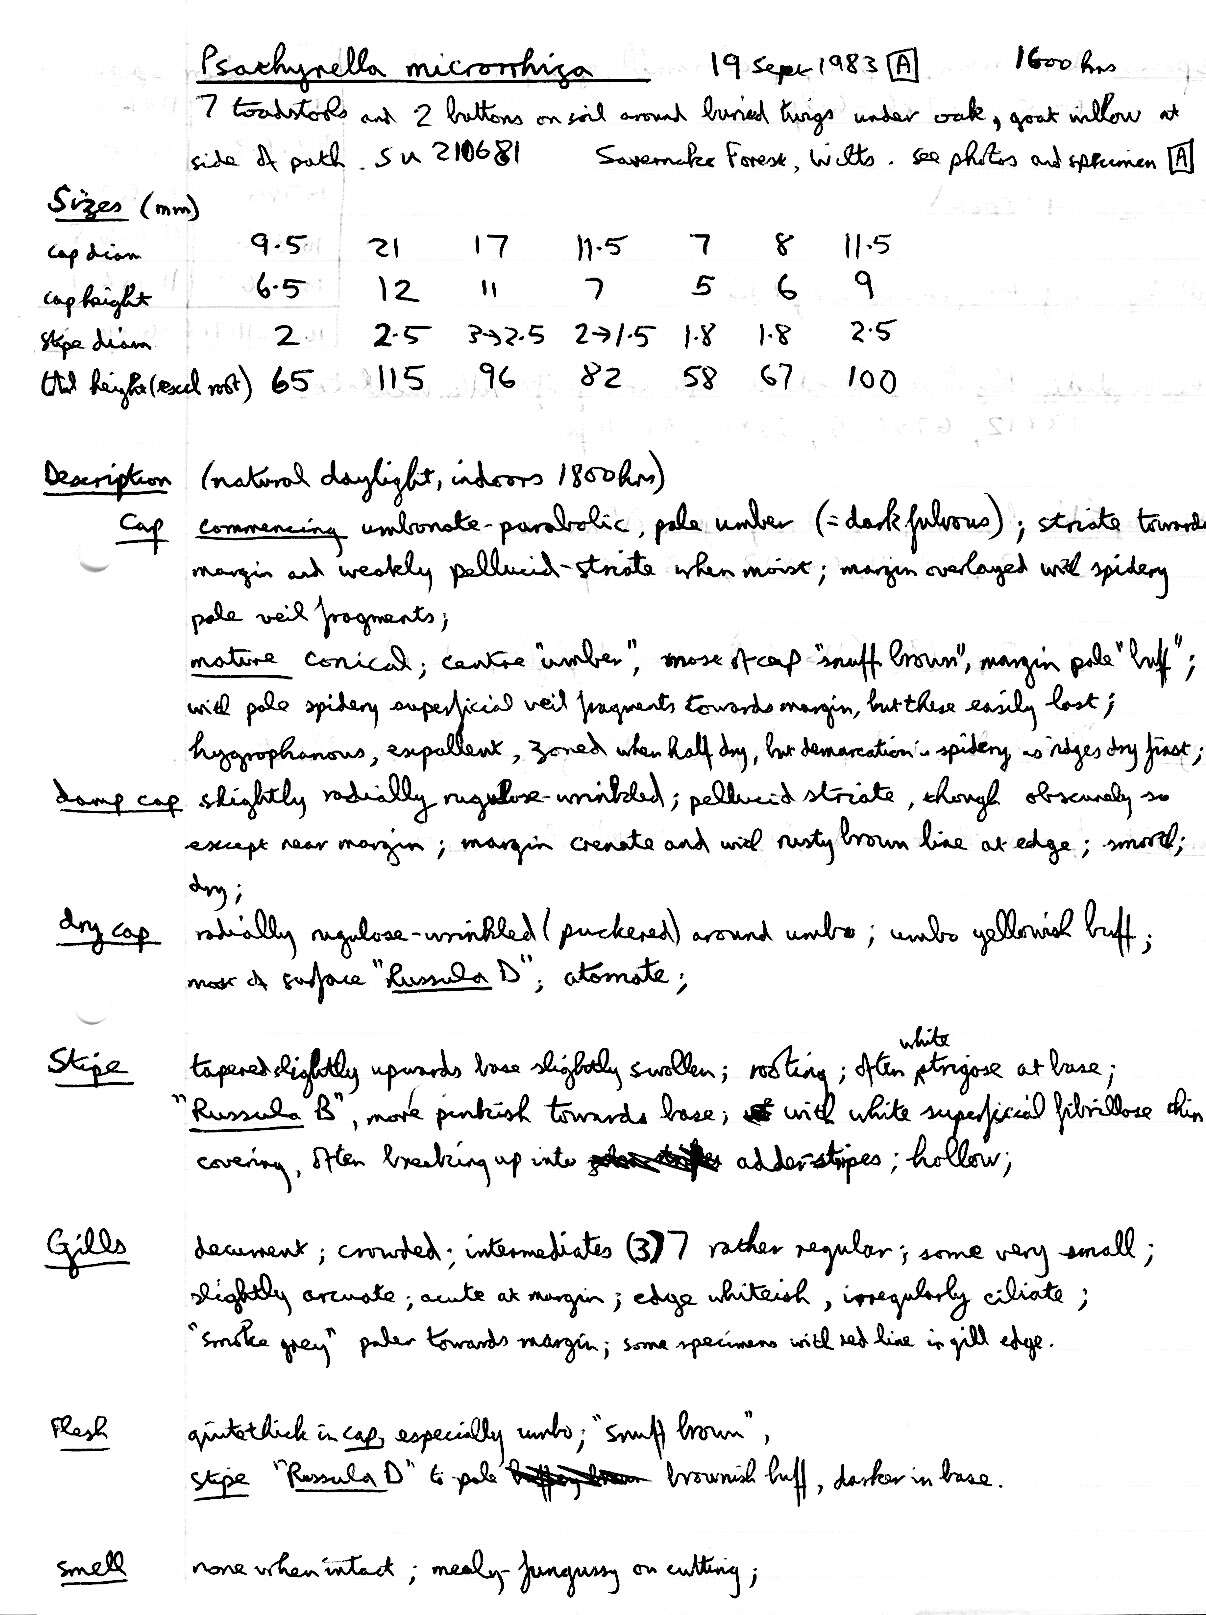 Psathyrella microrrhiza 19 Sept 1983 [A] 1600 hrs
7 toadstools and 2 buttons on soil around buried twigs under oak, goat willow at
side of path. SU 210681 Savernake Forest, Wilts. see photos and specimen [A]
Sizes (mm)
cap diam 9.5 21 17 11.5 7 8 11.5
cap height 6.5 12 11 7 5 6 9
stipe diam 2 2.5 3→2.5 2→1.5 1.8 1.8 2.5
total height (excl root) 65 115 96 82 58 67 100
Description (natural daylight, indoors 1800 hrs)
Cap commencing umbonate-parabolic, pale umber (= dark fulvous); striate towards
margin and weakly pellucid-striate when moist; margin overlayed with spidery
pale veil fragments;
mature conical; centre "umber", most of cap "snuff brown", margin pale "buff";
with pale spidery superficial veil fragments towards margin, but these easily lost;
hygrophanous, expallent, zoned when half dry, but demarcation is spidery as ridges dry first;
damp cap slightly radially rugulose-wrinkled; pellucid striate, though obscurely so
except near margin; margin crenate and with rusty brown line at edge; smooth;
dry;
dry cap radially rugulose-wrinkled (puckered) around umbo; umbo yellowish buff;
most of surface "Russula D"; atomate;
Stipe tapered slightly upwards base slightly swollen; rooting; often white strigose at base;
"Russula B", more pinkish towards base; with white superficial fibrillose thin
covering, often breaking up into adder-stripes; hollow;
Gills decurrent; crowded; intermediates (3) 7 rather regular; some very small;
slightly arcuate; acute at margin; edge whiteish, irregularly ciliate;
"smoke grey" paler towards margin; some specimens with red line in gill edge.
Flesh quite thick in cap, especially umbo; "snuff brown",
stipe "Russula D" to pale brownish buff, darker in base.
smell none when intact; mealy-fungussy on cutting;